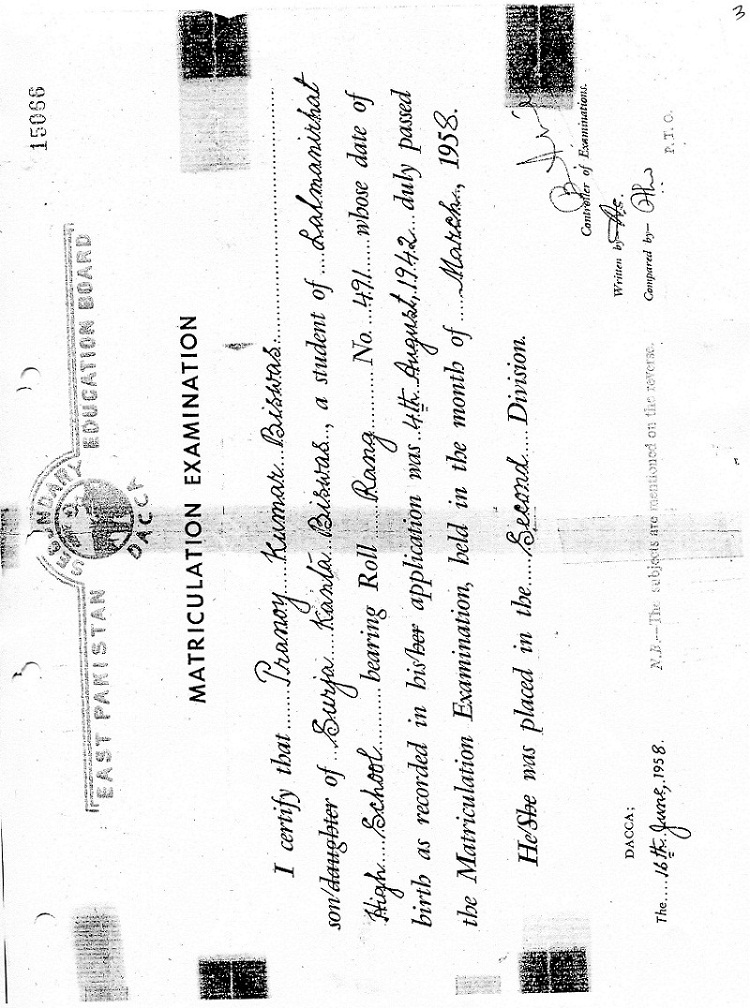 3
15066
EAST PAKISTAN SECONDARY EDUCATION BOARD
DACCA
MATRICULATION EXAMINATION
I certify that ..... Pranoy .... Kumar .... Biswas ..............................
son/daughter of ... Surja .... Kanta .. Biswas .., a student of .... Lalmanirhat
High .... School .......... bearing Roll ...... Rang ........ No. ... 491 ..... whose date of
birth as recorded in his/her application was .. 4th .. August, 1942 ... duly passed
the Matriculation Examination, held in the month of ..... March, 1958.
He/She was placed in the .... Second .... Division.
Controller of Examinations.
Written by-
Compared by-
DACCA;
The .... 16th June, 1958.
N.B.—The subjects are mentioned on the reverse.
P.T.O.